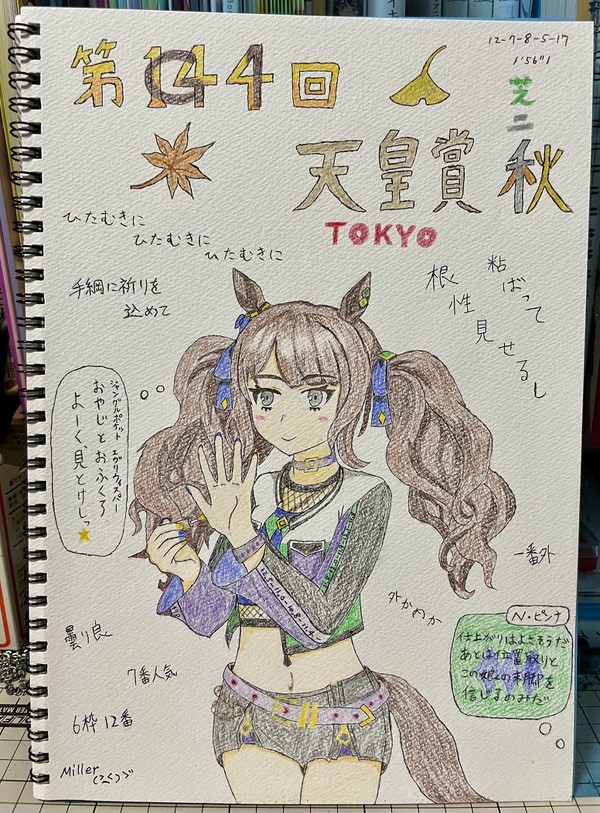 第144回
12-7-8-5-17
1'56"1
芝二
天皇賞 秋
TOKYO
ひたむきに
ひたむきに
ひたむきに
手綱に祈りを
込めて
粘ばって
根性
見せるし
ジャングルポケット エヴリウィスパー
おやじとおふくろ
よーく、見とけしっ
一番外
外かめか
曇り良
7番人気
6枠12番
N・ピンナ
仕上がりはよさそうだ
あとは位置取りと
この娘の末脚を
信じるのみだ
Miller